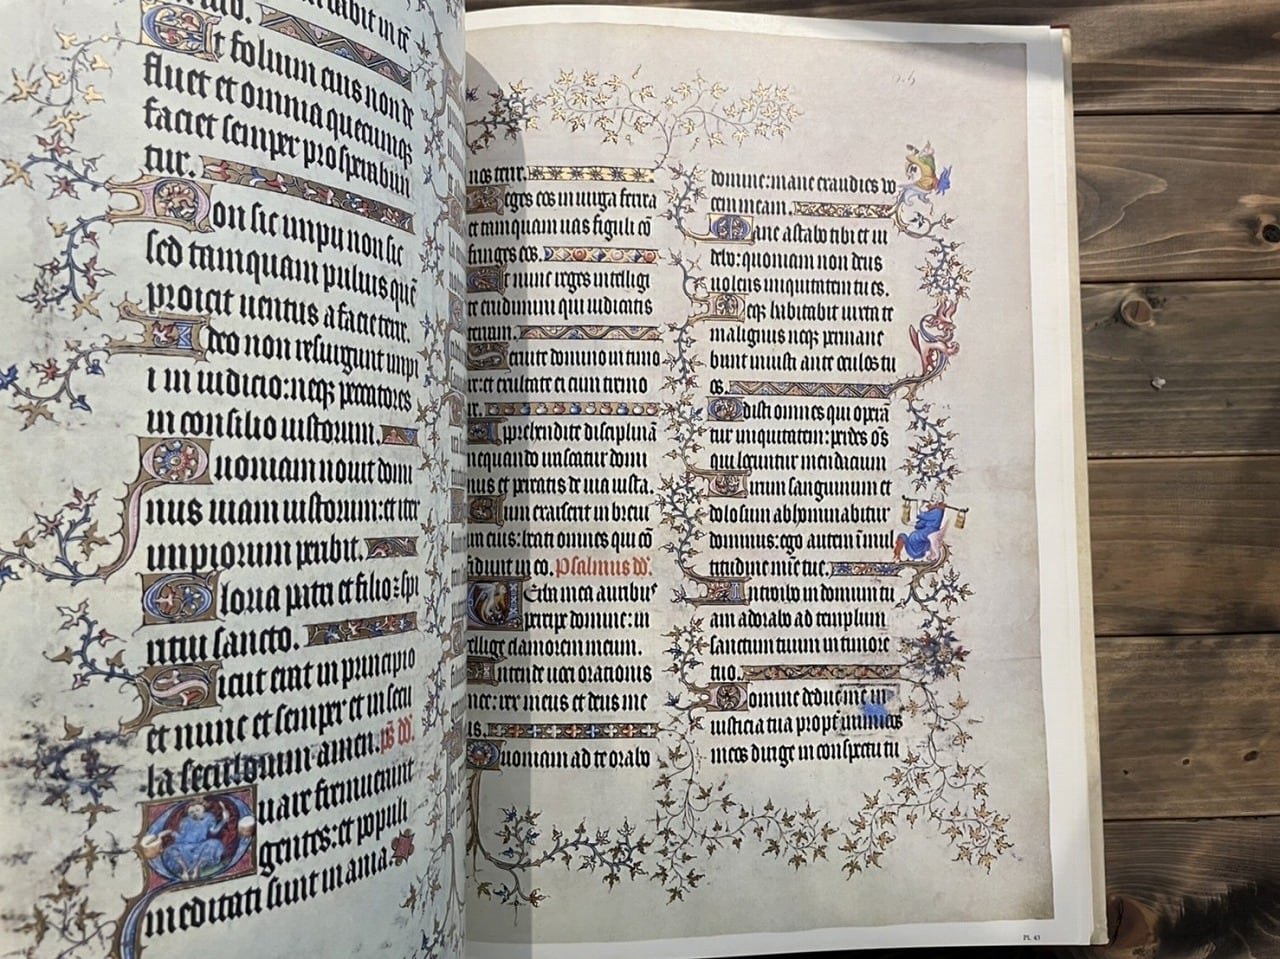 Et folium eius non de
fluet et omnia quecumqȝ
faciet semper prosperabun
tur.
Non sic impii non sic
sed tamquam puluis quē
proicit uentus a facie terre.
Ideo non resurgunt impi
i in iudicio: neqȝ peccatores
in consilio iustorum.
Quoniam nouit domi
nus uiam iustorum: et iter
impiorum peribit.
Gloria patri et filio: ⁊ spi
ritui sancto.
Sicut erat in principio
et nunc et semper et in secu
la seculorum amen. ps dd.
Quare fremuerunt
gentes: et populi
meditati sunt inania.
nos terre.
Reges eos in uirga ferrea
et tamquam uas figuli cō
fringes eos.
Et nunc reges intellige
te erudimini qui iudicatis
terram.
Seruite domino in timo
re: et exultate ei cum tremo
re.
Apprehendite disciplinā
nequando irascatur domi
nus et pereatis de uia iusta.
Cum exarserit in breui
ira eius: beati omnes qui cō
fidunt in eo. Psalmus dd.
Verba mea auribus
percipe domine: in
tellige clamorem meum.
Intende uoci orationis
mee: rex meus et deus me
us.
Quoniam ad te orabo
domine: mane exaudies uo
cem meam.
Mane astabo tibi et ui
debo: quoniam non deus
uolens iniquitatem tu es.
Neqȝ habitabit iuxta te
malignus neqȝ permane
bunt iniusti ante oculos tu
os.
Odisti omnes qui operā
tur iniquitatem: perdes oēs
qui locuntur mendacium
Uirum sanguinum et
dolosum abhominabitur
dominus: ego autem ī mul
titudine mīe tue.
Introibo in domum tu
am adorabo ad templum
sanctum tuum in timore
tuo.
Domine deduc me in
iusticia tua propt̄ inimicos
meos dirige in conspectu tu
Pl. 43